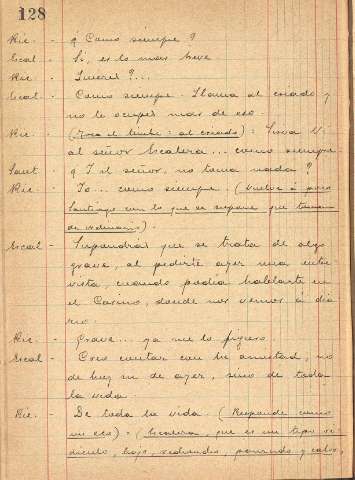 128
Ric. - ¿Como siempre?
Escal - Si, es lo mas breve
Ric -
Escal - Como siempre. Llama al criado y
no te ocupes mas de eso.
Ric. - (Toca el timbre: al criado): Sirva V.
al señor Escalera... como siempre.
Sant. - ¿Y el señor, no toma nada?
Ric - Yo... como siempre. (Vuelve á poco
Santiago con lo que se supone que
de ordinario).
Escal - Supondrás que se trata de algo
grave, al pedirte ayer una entre-
vista, cuando podia hablarte en
el Casino, donde nos vemos á dia-
rio.
Ric. - Grave... ya me lo figuro.
Escal - Creo contar con tu amistad, no
de hoy ni de ayer, sino de toda
la vida.
Ric. - De toda la vida. (Responde como
un eco). (Escalera, que es un tipo
bajo, redondo, y calvo,